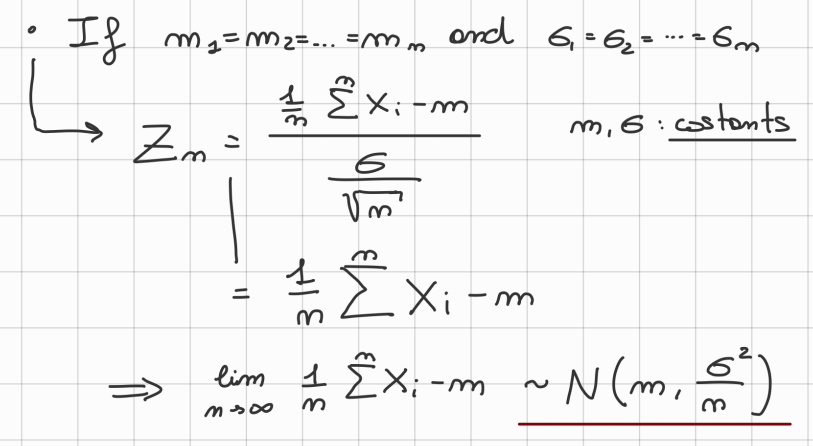 • If m₁ = m₂ = ... = mₙ and σ₁ = σ₂ = ... = σₙ
→ Zₙ = (1/n ∑ⁿ Xᵢ − m) / (σ/√n) m, σ : costants
= 1/n ∑ⁿ Xᵢ − m
⇒ lim n→∞ 1/n ∑ⁿ Xᵢ − m ~ N(m, σ²/n)